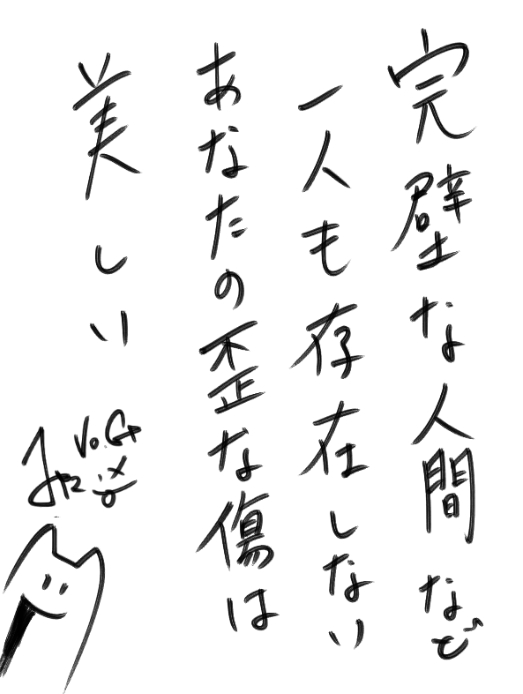 完璧な人間など
一人も存在しない
あなたの歪な傷は
美しい
Vo.Gt